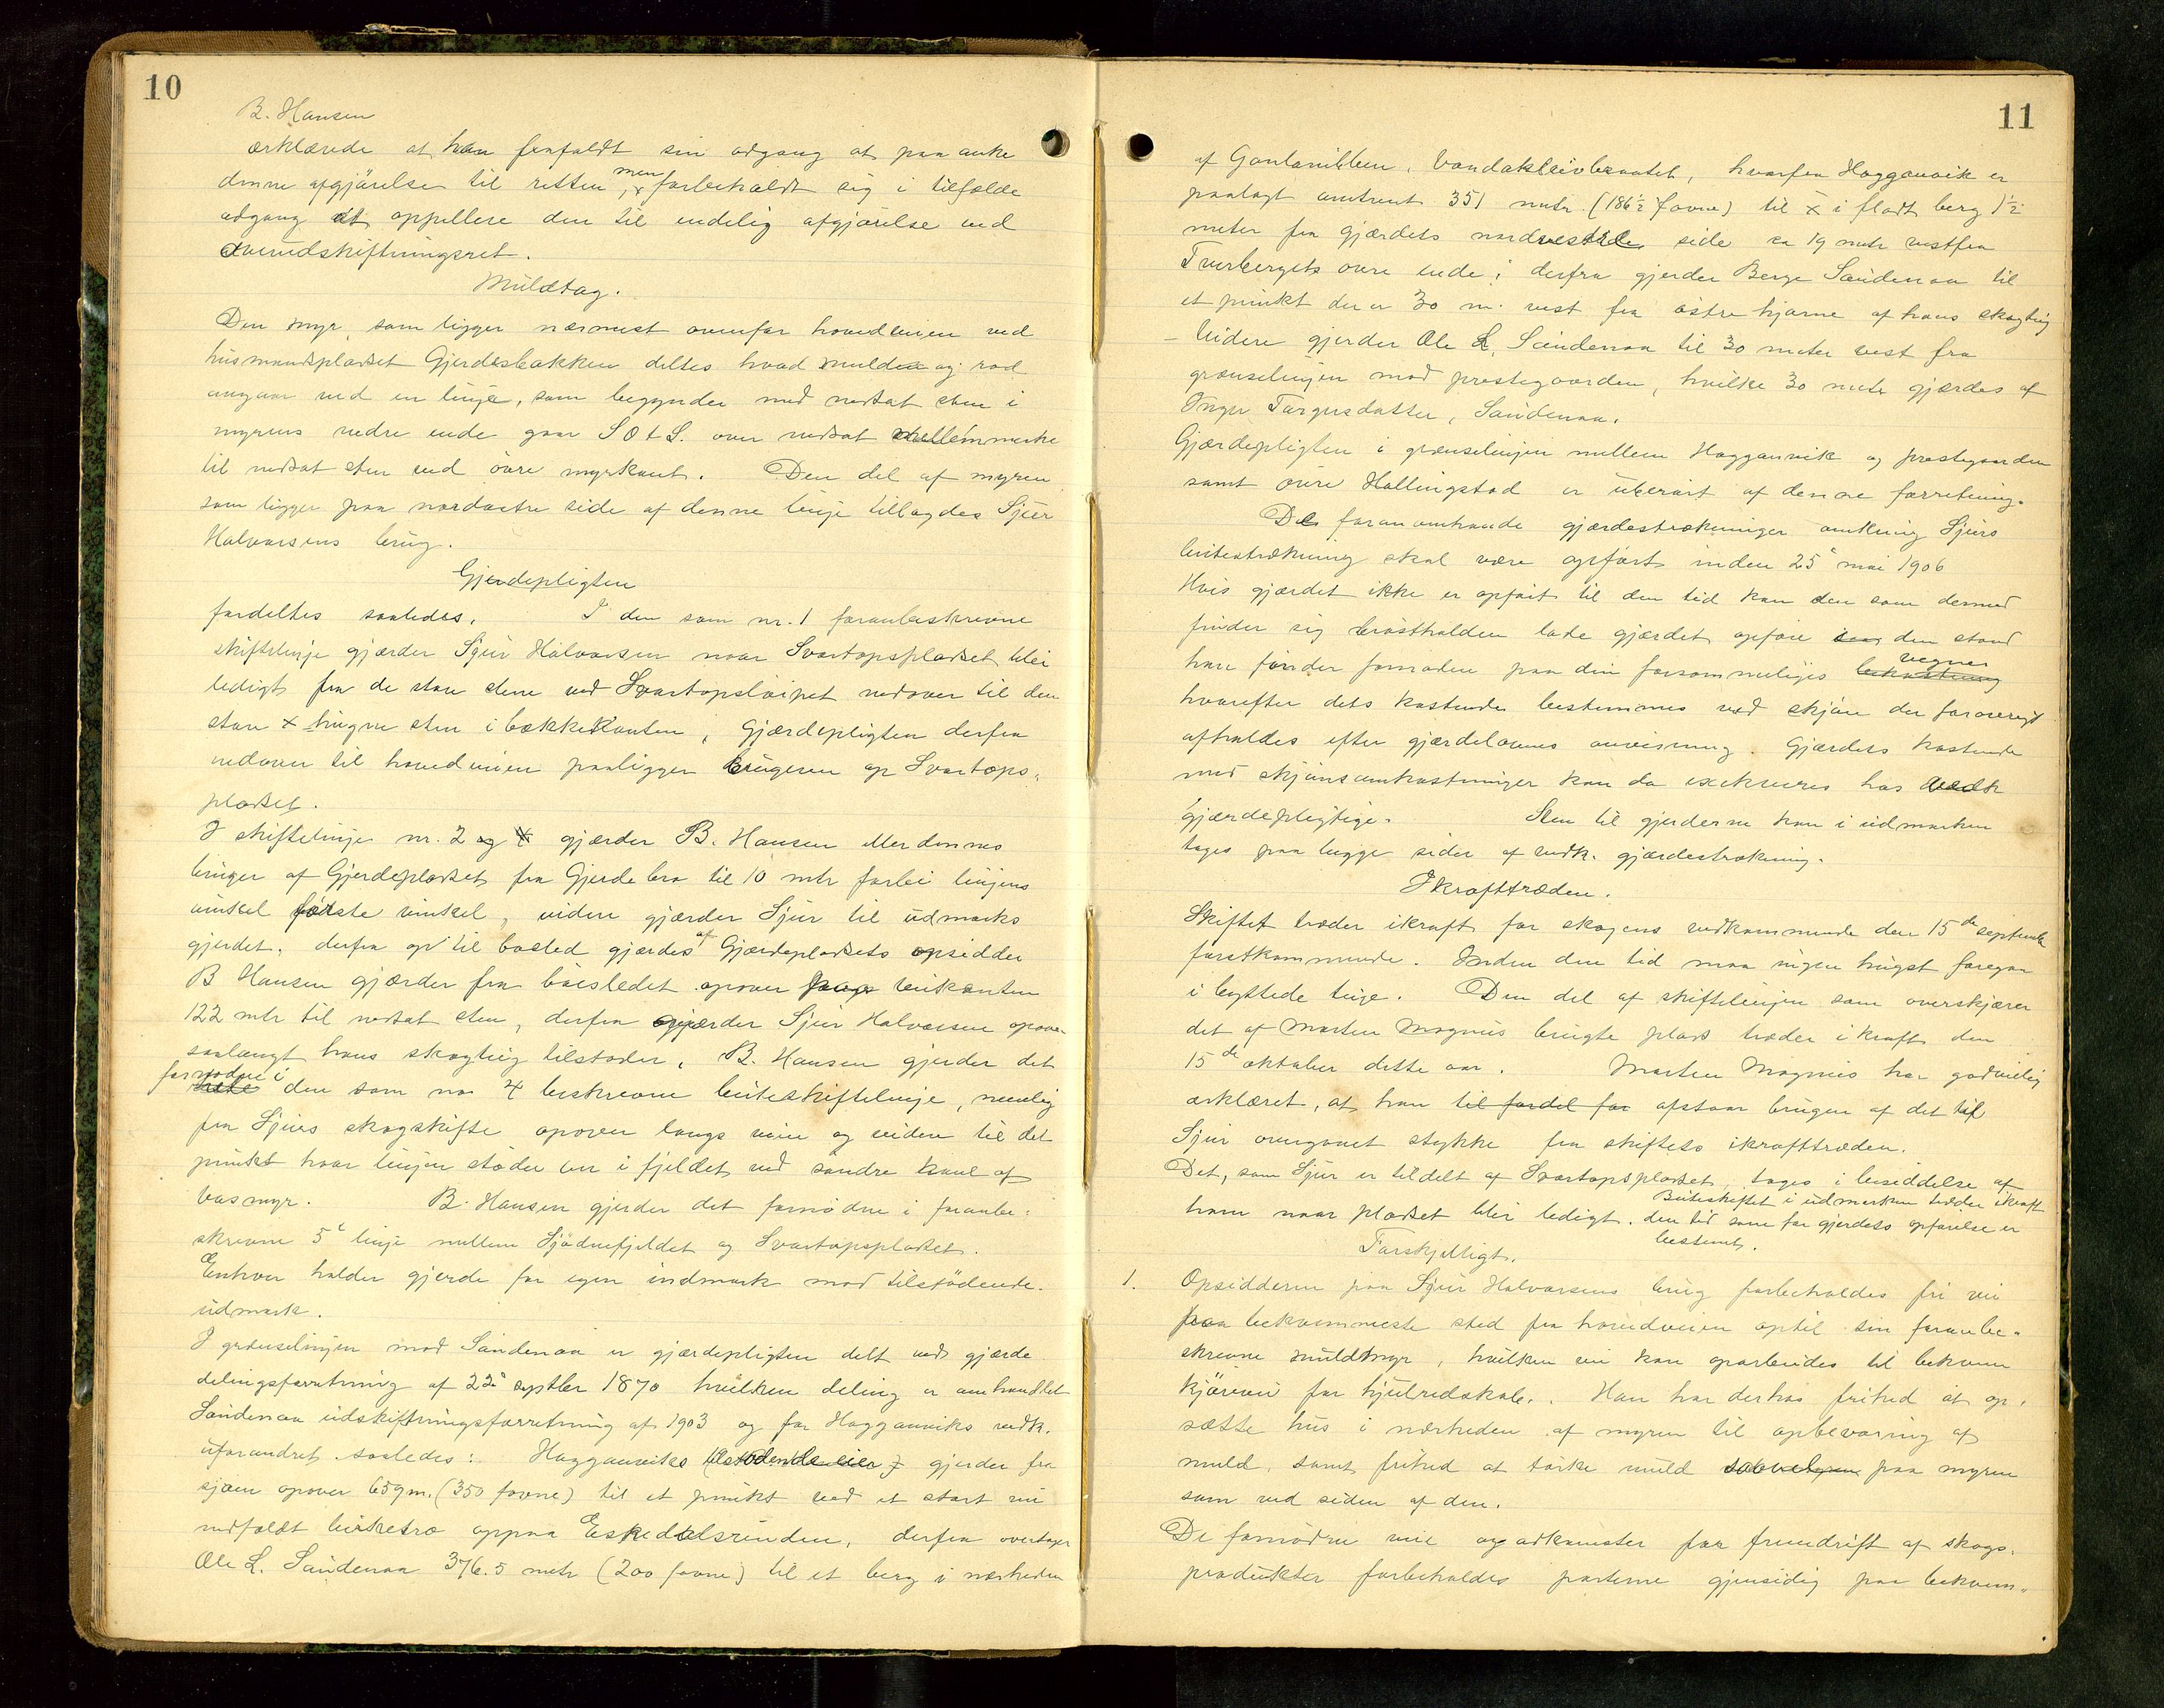 10
B. Hansen
erklærede at han frafaldt sin adgang at paa anke
denne afgjørelse til retten, men forbeholdt sig i tilfælde
adgang at appellere den til endelig afgjørelse ved
overudskiftningsret.
Muldtag.
Den myr, som ligger nærmest ovenfor hovedveien ved
husmandspladset Gjerdesbakken deltes hvad muld og rod
angaar ved en linje, som begynder med nedsat sten i
myrens nedre ende gaar S O t S. over nedsat mellemmerke
til nedsat sten ved øvre myrkant. Den del af myren
som ligger paa nordøstre side af denne linje tillagdes Sjur
Halvorsens brug.
Gjerdepligten
fordeltes saaledes. I den som nr. 1 foranbeskrevne
skiftelinje gjærder Sjur Halvorsen naar Svartopspladset blei
ledigt fra de store stene ved Svartopsløipet nedover til den
store x hugne sten i bækkekanten, Gjærdepligten derfra
nedover til hovedveien paaligger brugeren op Svartops-
pladset.
I skiftelinje nr. 2 og gjærder B. Hansen eller dennes
bruger af Gjerdepladset fra Gjerdebra til 10 mtr forbi linjens
vinkel første vinkel, videre gjærder Sjur til udmarks
gjerdet, derfra op til bøsled gjærdes af Gjærdepladsets opsidder
B Hansen gjærder fra bøisledet opover beitekanten
122 mtr til nedsat sten, derfra gjærder Sjur Halvorsen opover
saalangt hans skogteig tilstøder. B. Hansen gjerder det
fornødne i den som no 4 beskrevne beiteskiftelinje, nemlig
fra Sjurs skogskifte opover langs veien og videre til det
punkt hvor linjen støder inn i fjeldet ved søndre kant af
Vasmyr. B. Hansen gjerder det fornødne i foranbe-
skrevne 5te linje mellem Sjødnefjeldet og Svartopspladset.
Enhver holder gjerde for egen indmark mod tilstødende
udmark.
I grænselinjen mod Sandenaa er gjærdepligten delt ved gjærde
delingsforretning af 22de septbr 1870 hvilken deling er omhandlet
Sandenaa udskiftningsforretning af 1903 og for Hogganviks vedk.
uforandret saaledes: Hogganviks tilstødende eier gjerder fra
sjøen opover 659 m. (350 favne) til et punkt ved et stort nu
nedfaldt birketræ oppaa Eskedalsrinden, derfra overtager
Ole L. Sandenaa 376.5 mtr (200 favne) til et berg i nærheden
11
af Vandakleivbraatet, hvorfra Hogganvik er
paalagt omtrent 351 mtr. (186½ favne) til x i fladt berg 1½
meter fra gjærdets nordvestre side ca 19 mtr vestfra
Tverbergets øvre ende; derfra gjerder Berge Sandenaa til
et punkt der er 30 m. vest fra østre hjørne af hans skogteig
- Videre gjerder Ole L. Sandenaa til 30 meter vest fra
grænselinjen mod prestegaarden, hvilke 30 mtr gjærdes af
Inger Torgersdatter, Sandenaa.
Gjærdepligten i grænselinjen mellem Hogganvik og prestegaarden
samt øvre Hallingstad er uberørt af denne forretning.
De foranomhandlede gjærdestrækninger omkring Sjurs
beitestrækning skal være opført inden 25de mai 1906
Hvis gjærdet ikke er opført til den tid kan den som dermed
finder sig brøstholden lade gjærdet opføre i den stand
han finder fornøden paa den forsømmeliges bekostning vegner
hvorefter dets kostende bestemmes ved skjøn der forøvrigt
afholdes efter gjærdelovens anvisning. Gjærdets kostende
med skjønsomkostninger kan da exekveres hos vedk
gjærdepligtige. Sten til gjerderne kan i udmarken
tages paa begge sider af vedk. gjærdestrækning.
Ikrafttræden.
Skiftet træder ikraft for skogens vedkommende den 15de septembr
førstkommende. Inden den tid maa ingen hugst foregaa
i byttede teige. Den del af skiftelinjen som overskjærer
det af Morten Magnus brugte plads træder i kraft den
15de oktober dette aar. Morten Magnus har godvillig
erklæret, at han til fordel for afstaar brugen af det til
Sjur overgaaet stykke fra skiftets ikrafttræden.
Det, som Sjur er tildelt af Svartopspladset, tages i besiddelse af
ham naar pladset blir ledigt. Beiteskiftet i udmarken træder ikraft
den tid som for gjerdets opførelse er
bestemt.
Forskjelligt.
1. Opsidderen paa Sjur Halvorsens brug forbeholdes fri vei
paa bekvemmeste sted fra hovedveien optil sin foranbe-
skrevne muldmyr, hvilken vei kan oparbeides til bekvem
kjørevei for hjulredskab. Han har derhos frihed at op-
sætte hus i nærheden af myren til opbevaring af
muld, samt frihed at tørke muld saavel paa myren
som ved siden af den.
De fornødne veie og adkomster for fremdrift af skogs-
produkter forbeholdes parterne gjensidig paa bekvem-